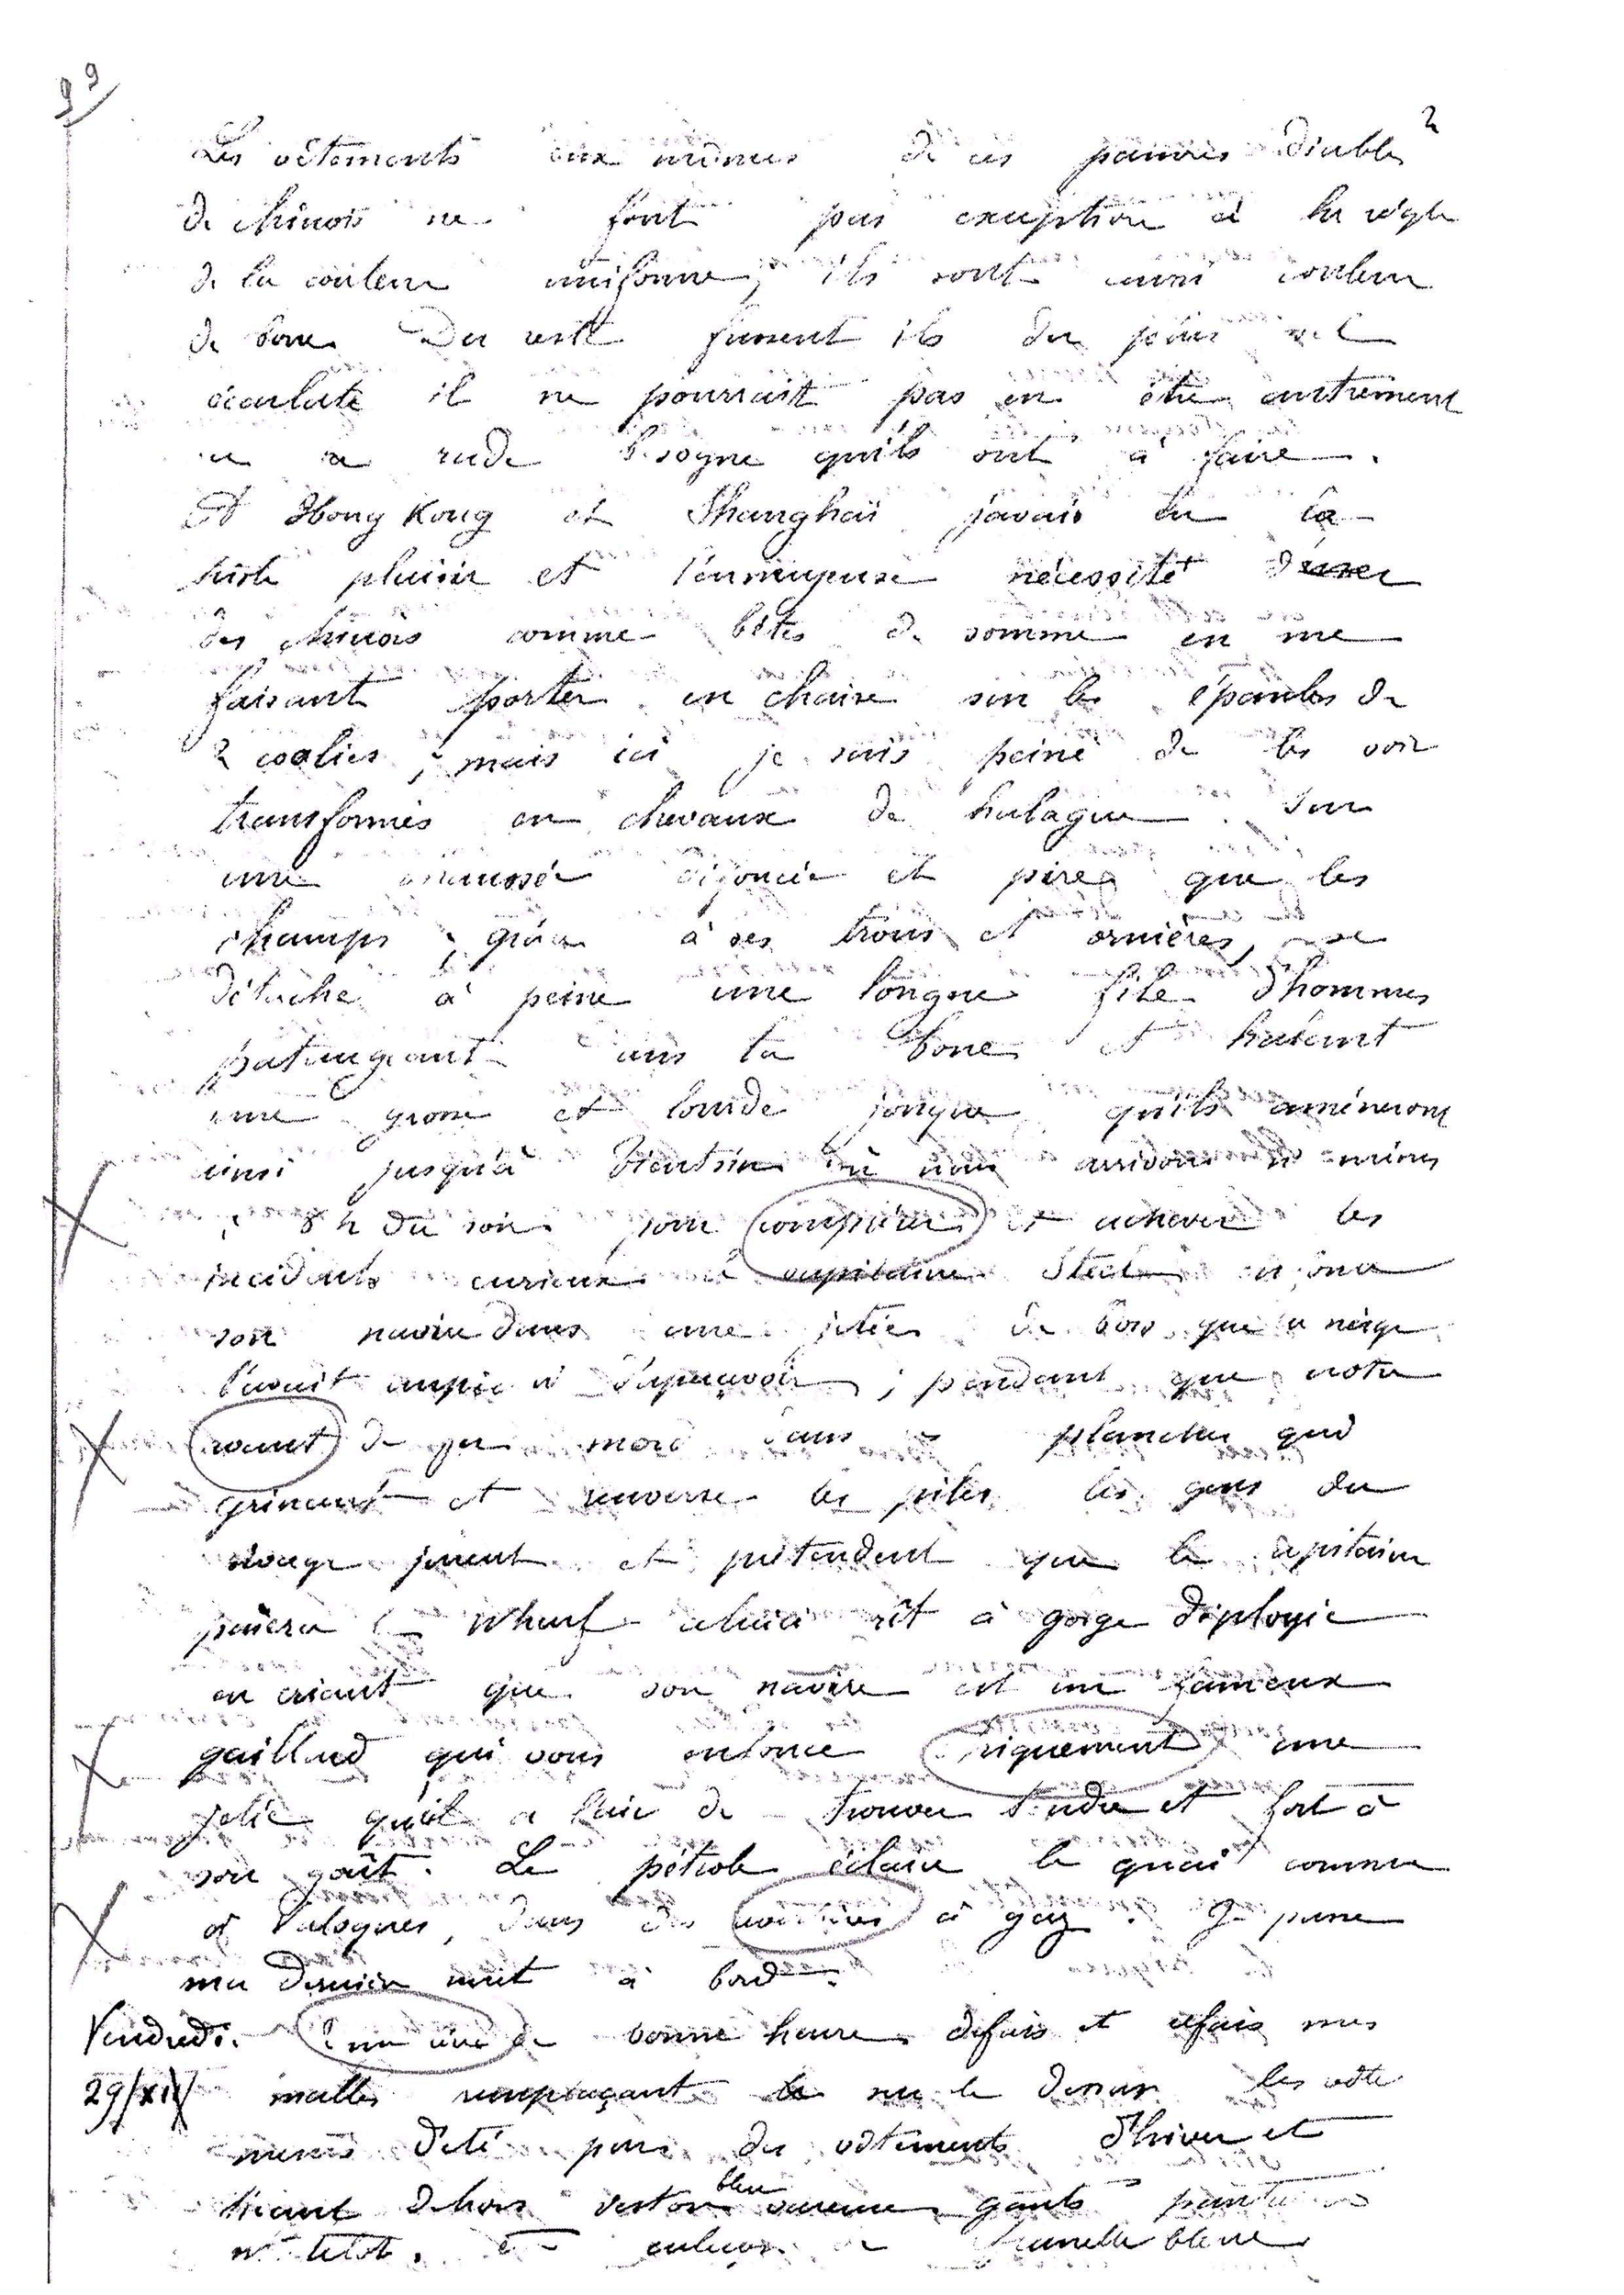 99
2
Les vêtements eux mêmes de ces pauvres diables
de chinois ne font pas exception à la règle
de la couleur uniforme ; ils sont aussi couleur
de boue Du reste fussent ils du plus vil
écarlate il ne pourrait pas en être autrement
rude besogne qu'ils ont à faire .
A Hong Kong et Shanghaï j'avais eu la
triste plaisir et l'ennuyeuse nécessité d'user
des chinois comme bêtes de somme en me
faisant porter en chaise sur les épaules de
2 coolies ; mais ici je suis peiné de les voir
transformés en chevaux de halage . Sur
une chaussée défoncée et pire que les
champs , grâce à ses trous et ornières, se
détache à peine une longue file d'hommes
pataugeant dans la boue et halant
une grosse et lourde jonque qu'ils amèneront
ainsi jusqu'à Tientsin où nous arrivons
à 8 h du soir pour et achever les
incidents curieux le capitaine enfonce
son navire dans une jetée de bois que la neige
l'avait empêché d'apercevoir ; pendant que notre
de fer mord dans planches qui
grincent et renverse les piles les gens du
rivage jurent et prétendent que le capitaine
paiera le Wharf celui ci rit à gorge déployée
en criant que son navire est un fameux
gaillard qui vous enfonce une
jetée qu'il a l'air de trouver tendre et fort à
son goût . Le pétrole éclaire le quai comme
à Valognes, dans des à gaz . Je passe
ma dernière nuit à bord .
Vendredi. de bonne heure defais et refais mes
29/XII malles remplaçant sur le dessus les vête
ments d'été par des vêtements d'hiver et
tirant dehors veston bleu gants
flanelle bleue